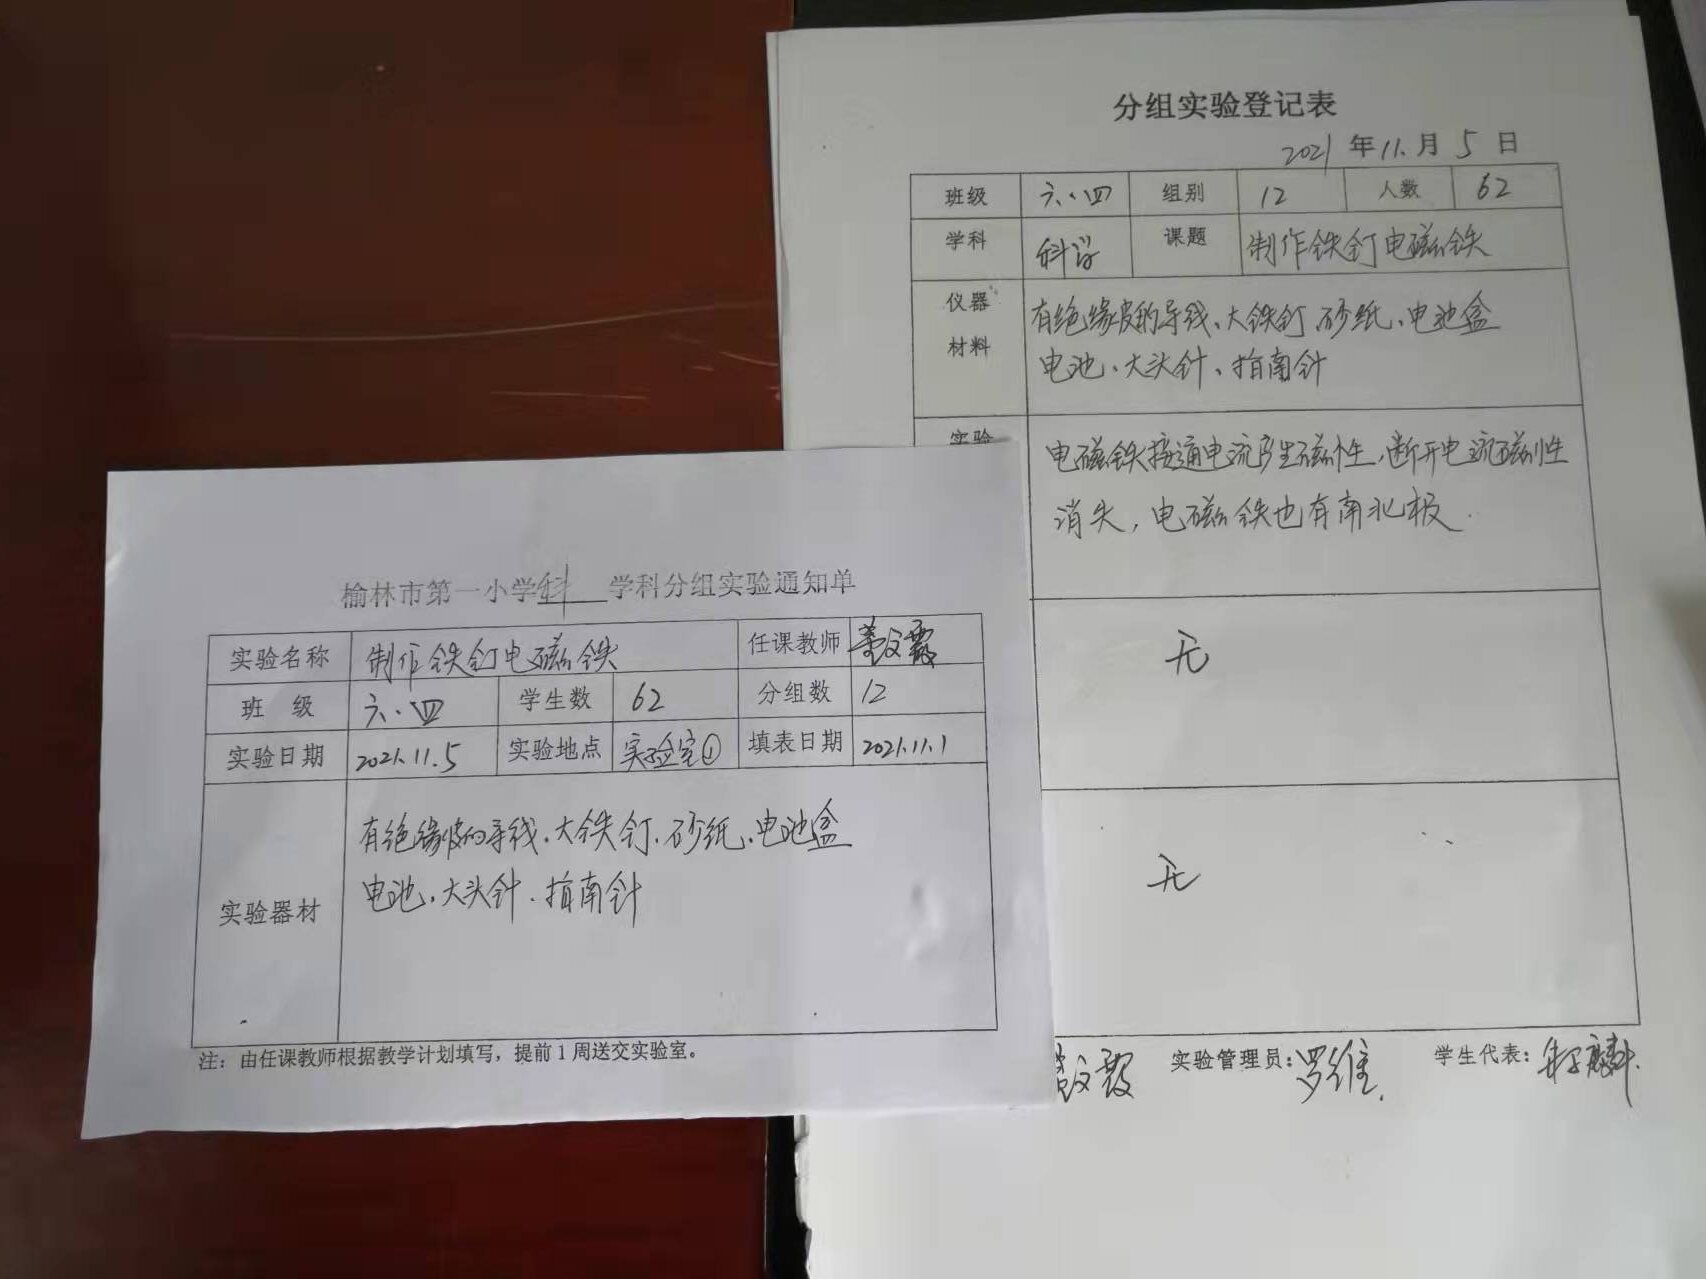 分组实验登记表
2021 年 11. 月 5 日
班级 六.四 组别 12 人数 62
学科 科学 课题 制作铁钉电磁铁
仪器 有绝缘皮的导线、大铁钉 砂纸、电池盒
材料 电池、大头针、指南针
实验 电磁铁接通电流产生磁性,断开电流磁性
消失,电磁铁也有南北极.
无
无
文霞 实验管理员:罗维. 学生代表:
榆林市第一小学科 学科分组实验通知单
实验名称 制作铁钉电磁铁 任课教师 文霞
班 级 六.四 学生数 62 分组数 12
实验日期 2021.11.5 实验地点 实验室① 填表日期 2021.11.1
有绝缘皮的导线、大铁钉、砂纸、电池盒
电池、大头针、指南针
实验器材
注：由任课教师根据教学计划填写，提前1周送交实验室。